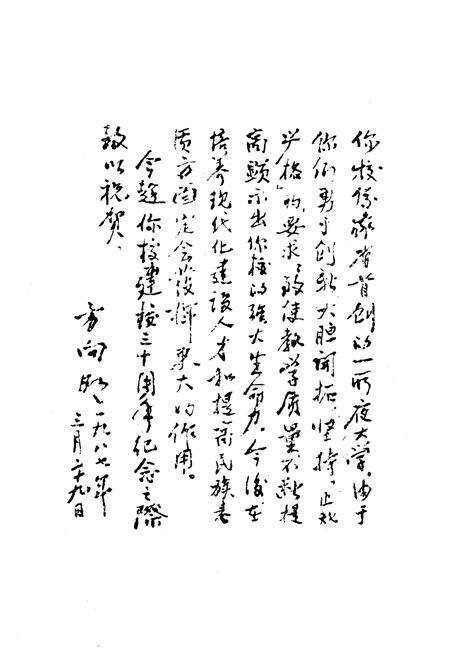 你校系我省首创的一所夜大学。由于
你们勇于创新，大胆闯拓，坚持“正规
严格”的要求，致使教学质量不断提
高，显示出你校的强大生命力。今后在
培养现代化建设人才和提高民族素
质方面定会发挥更大的作用。
今趁你校建校三十周年纪念之际
致以祝贺。
方向明 一九八七年
三月二十九日